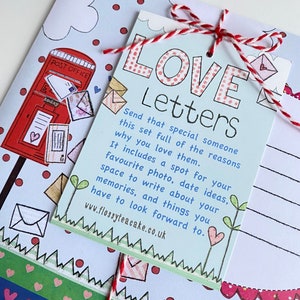 POST OFFICE
LOVE
Letters
Send that special someone
this set full of the reasons
why you love them.
It includes a spot for your
favourite photo, date ideas,
space to write about your
memories, and things you
have to look forward to.
www.flossyteacake.co.uk